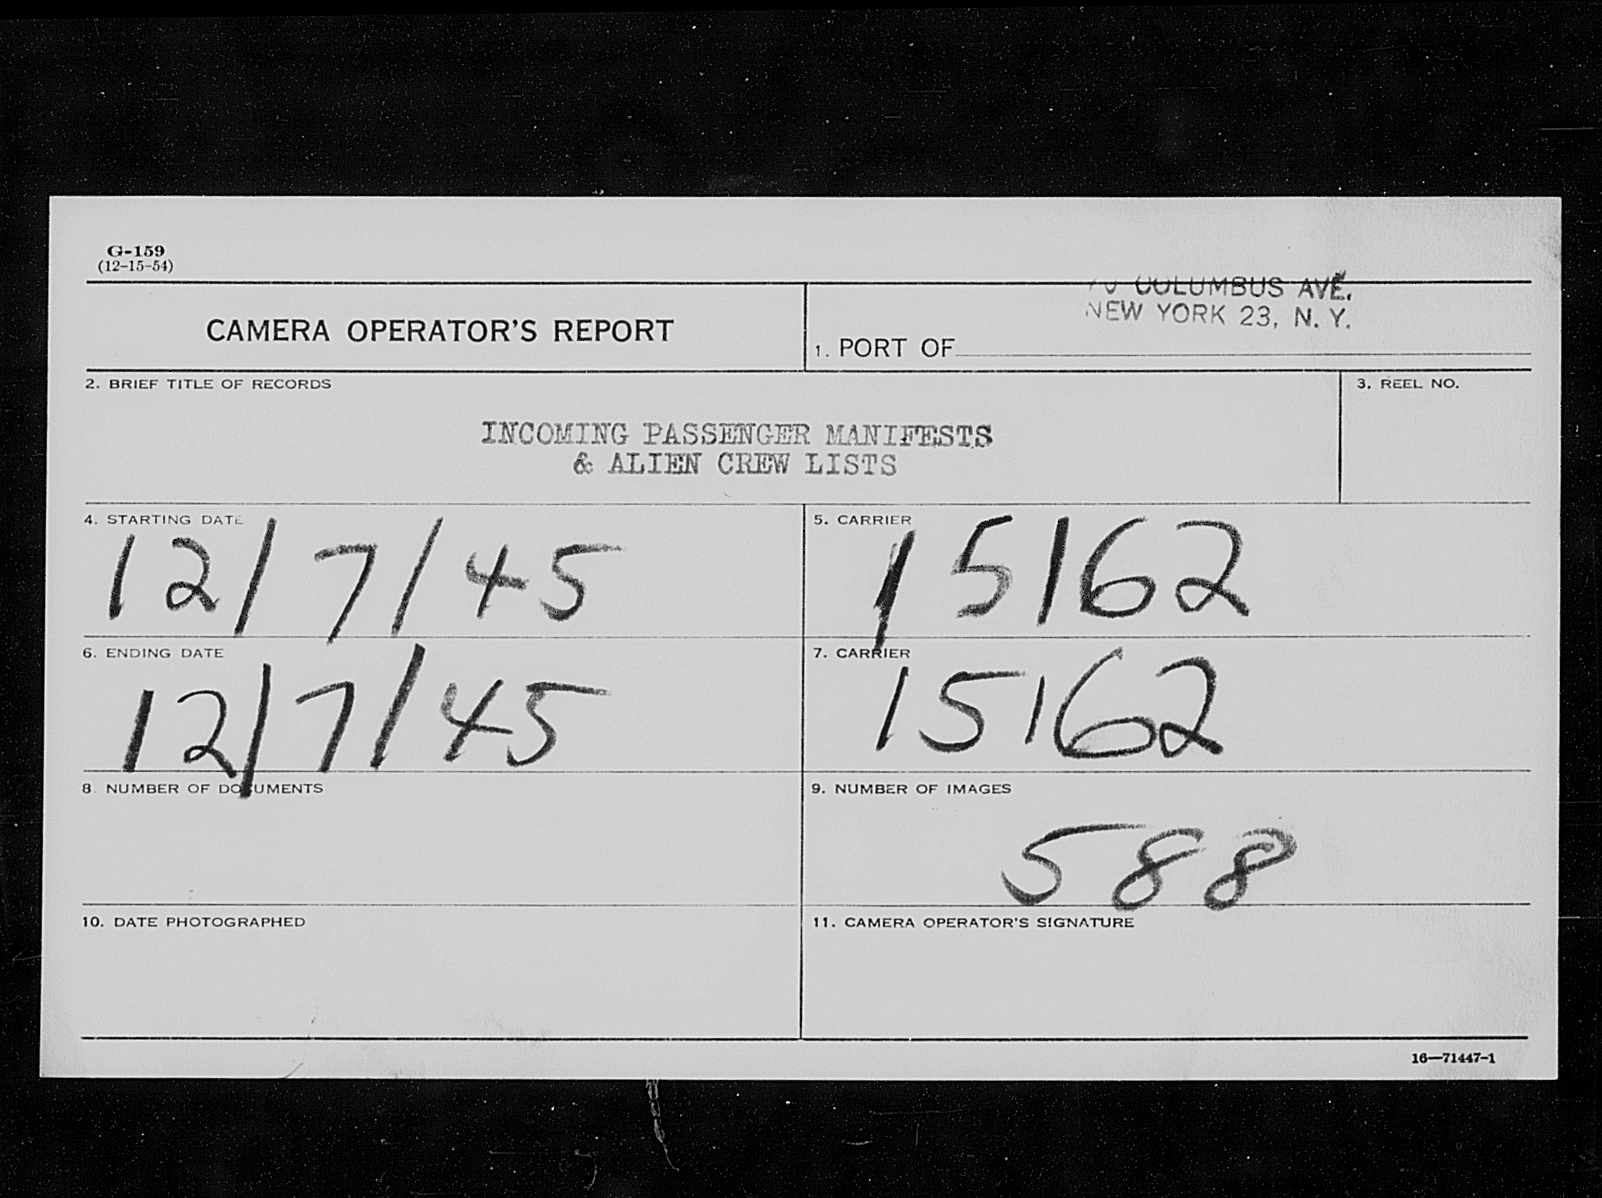 G-159
(12-15-54)
COLUMBUS AVE.
NEW YORK 23, N. Y.
CAMERA OPERATOR'S REPORT
1. PORT OF
2. BRIEF TITLE OF RECORDS
3. REEL NO.
INCOMING PASSENGER MANIFESTS
& ALIEN CREW LISTS
4. STARTING DATE
12/7/45
5. CARRIER
15162
6. ENDING DATE
12/7/45
7. CARRIER
15162
8. NUMBER OF DOCUMENTS
9. NUMBER OF IMAGES
588
10. DATE PHOTOGRAPHED
11. CAMERA OPERATOR'S SIGNATURE
16—71447-1